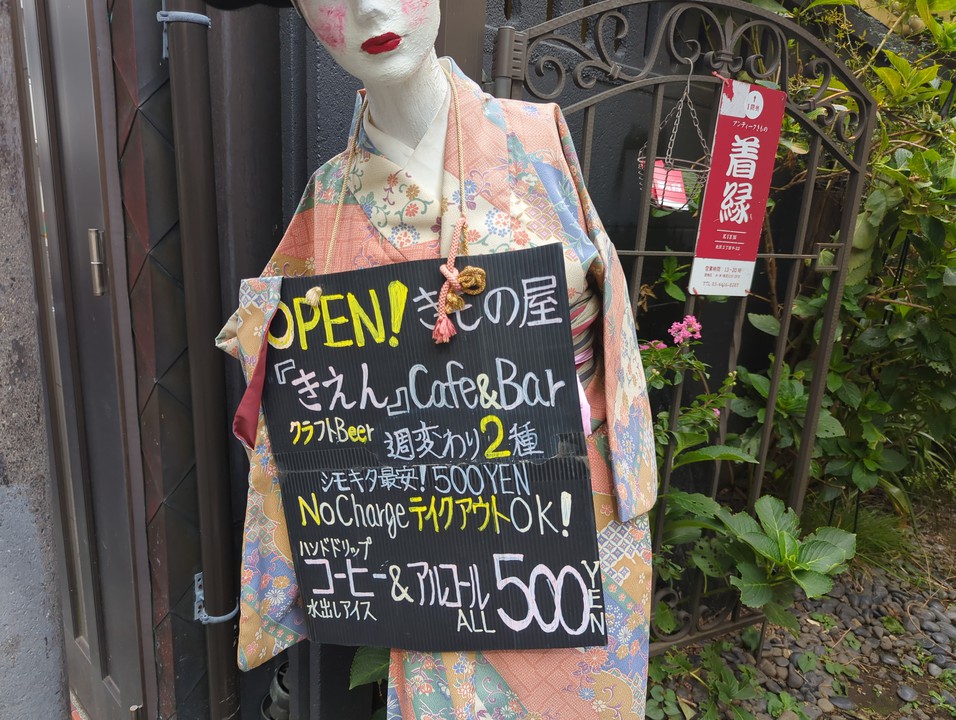 OPEN! きもの屋
『きえん』Cafe&Bar
クラフトBeer 週変わり2種
シモキタ最安! 500YEN
No Charge テイクアウトOK!
ハンドドリップ
コーヒー&アルコール 500YEN
水出しアイス ALL
アンティークきもの
着縁
KIEN